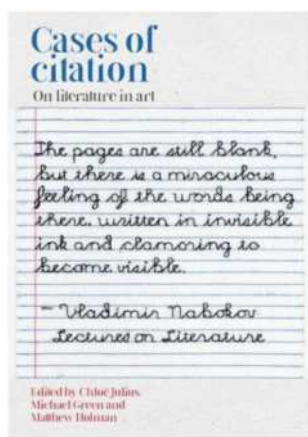 Cases of
citation
On literature in art
The pages are still blank,
but there is a miraculous
feeling of the words being
there, written in invisible
ink and clamoring to
become visible.
– Vladimir Nabokov
Lectures on Literature
Edited by Chloë Julius,
Michael Green and
Matthew Holman